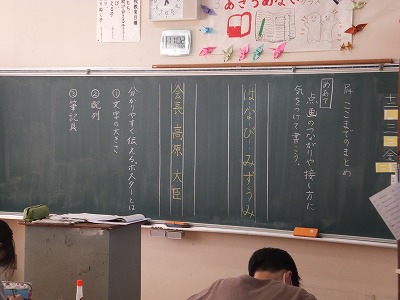 あきらめない
十二
三
金
P4 ここまでのまとめ
めあて
点画のつながりや接し方に
気をつけて書こう。
はなび・みずうみ
会長 高原 大臣
分かりやすく伝えるポスターとは
①文字の大きさ
②配列
③筆記具